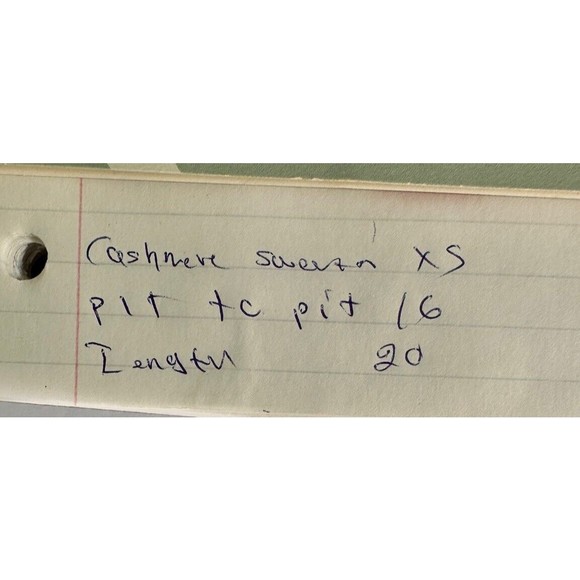 Cashmere sweater XS
pit to pit 16
Length 20